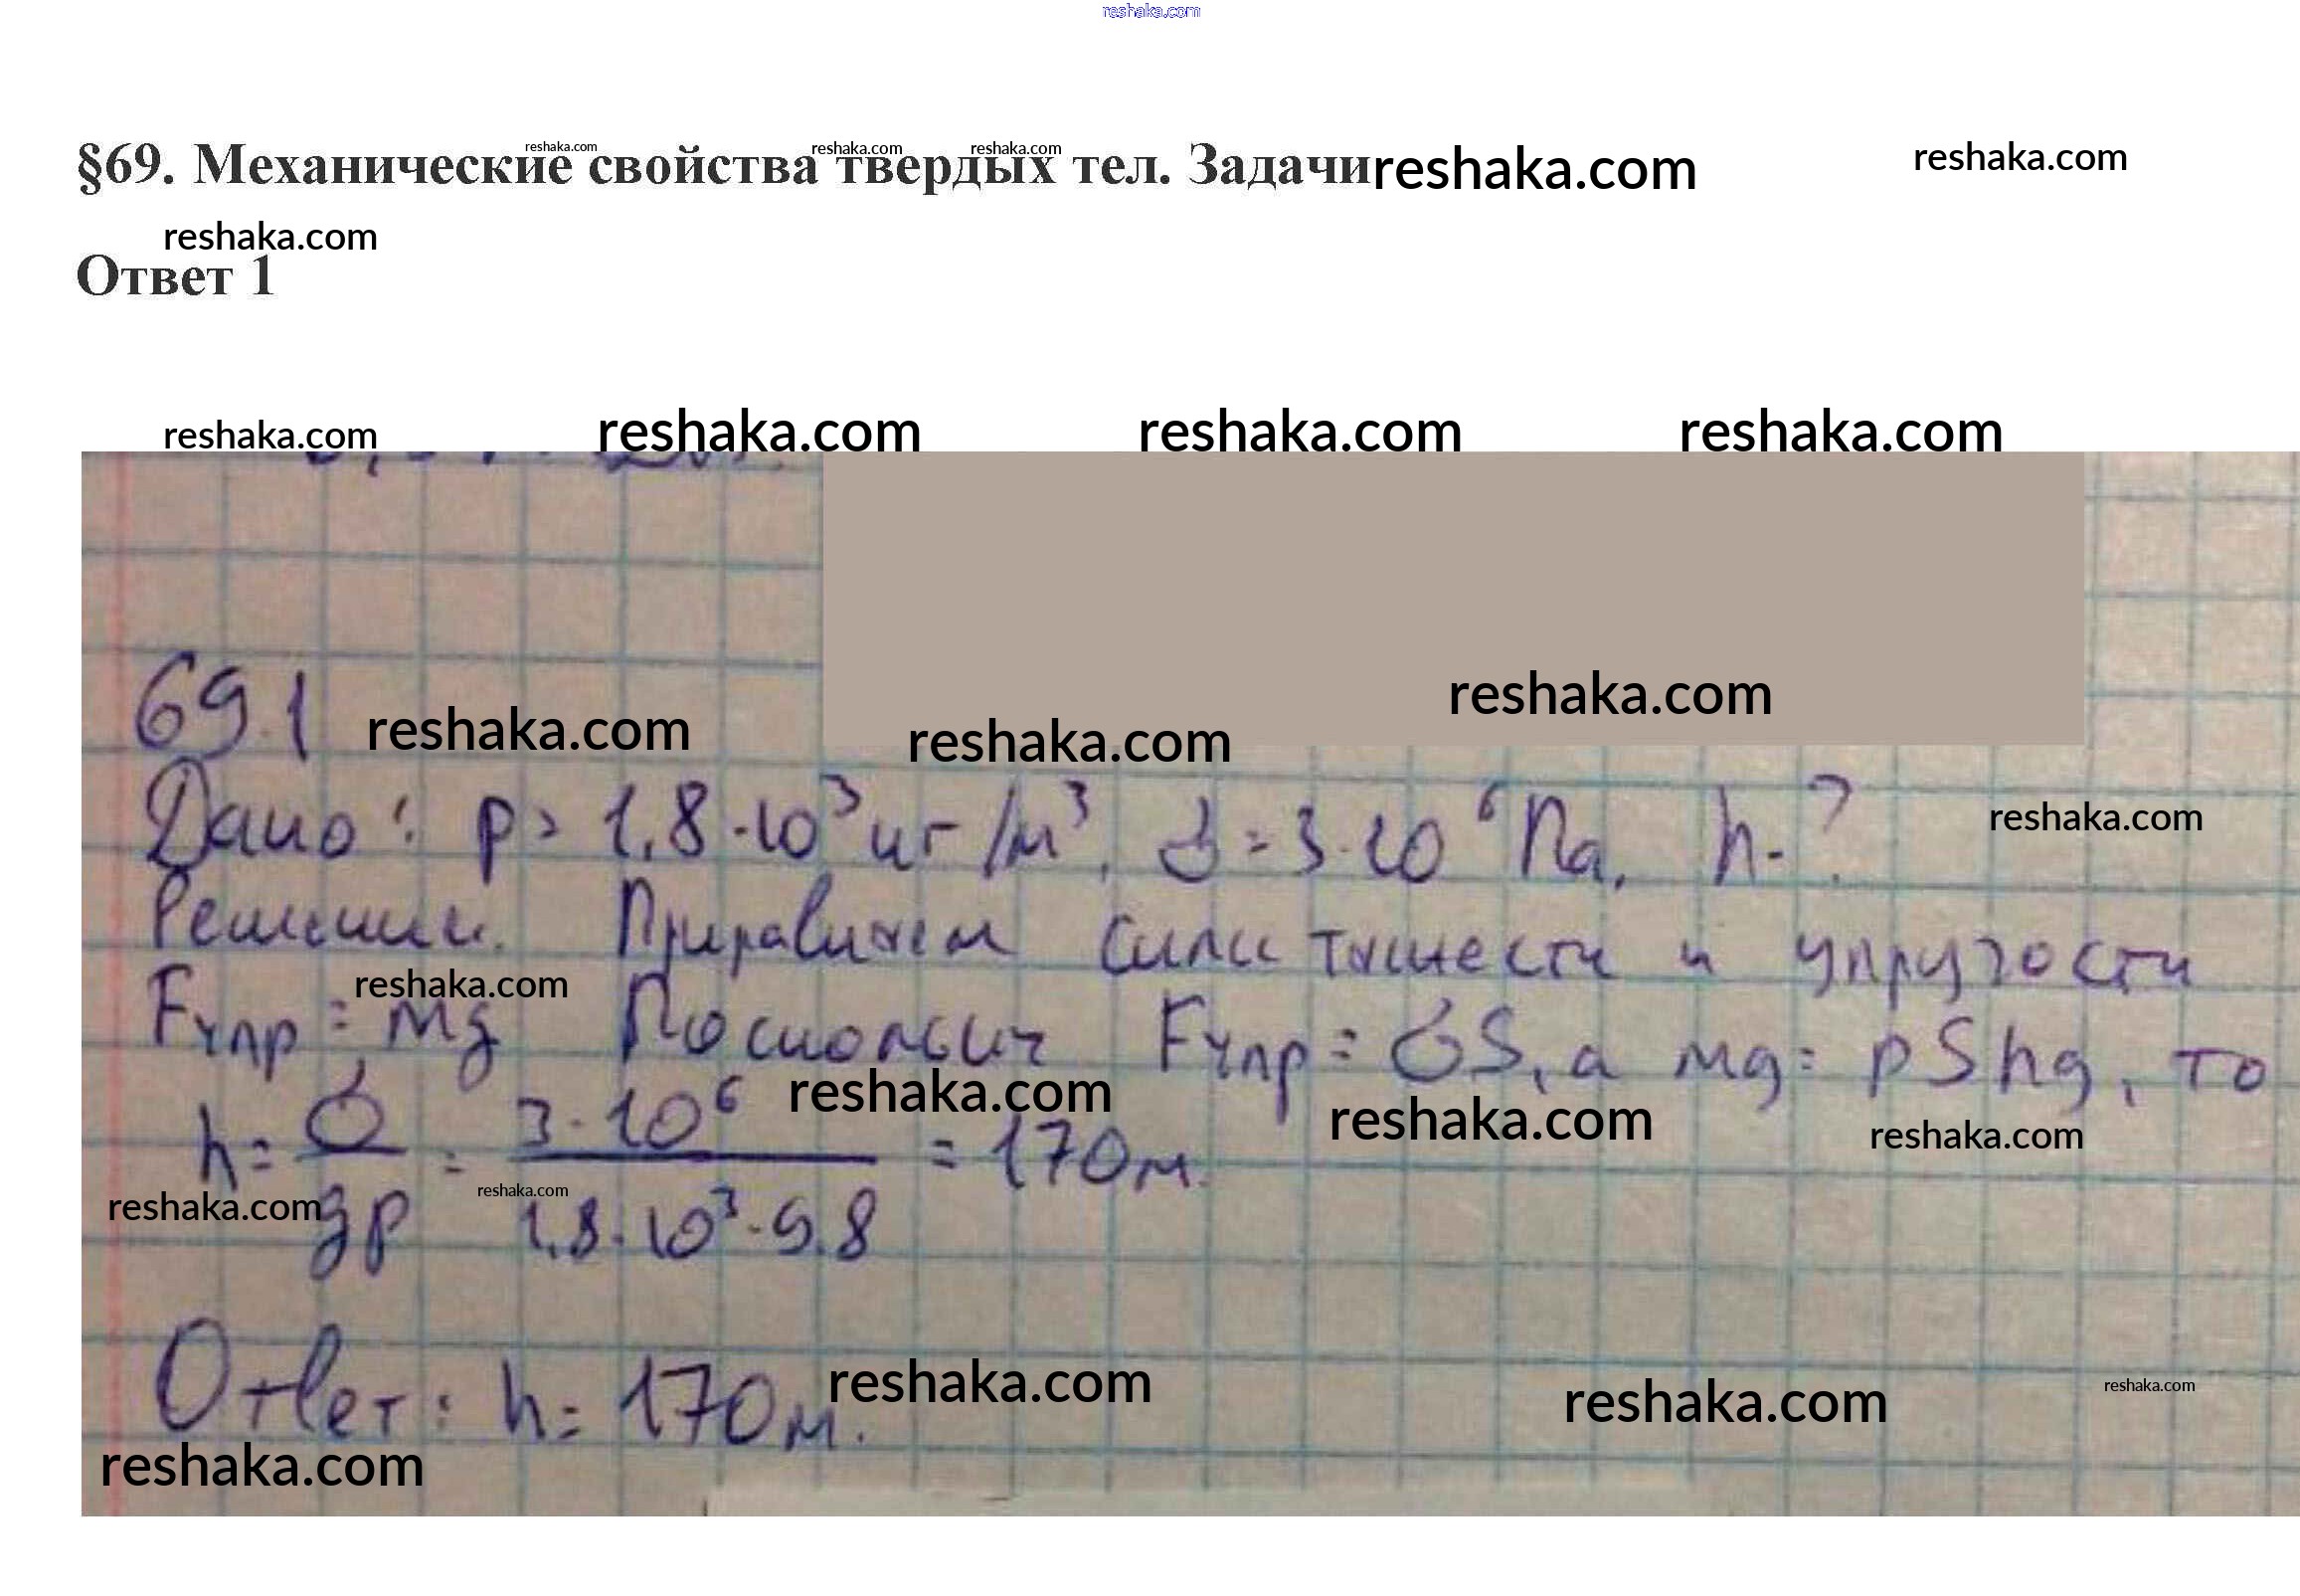 reshaka.com
§69. Механические свойства твердых тел. Задачи
reshaka.com reshaka.com reshaka.com reshaka.com reshaka.com
reshaka.com
Ответ 1
reshaka.com reshaka.com reshaka.com reshaka.com
reshaka.com
69.1 reshaka.com reshaka.com
Дано: ρ = 1,8·10³ кг/м³, σ = 3·10⁶ Па, h-? reshaka.com
Решение. Приравняем силы тяжести и упругости
reshaka.com
Fупр = mg Поскольку Fупр = σS, а mg = ρShg, то
reshaka.com reshaka.com reshaka.com
h = σ/gρ = 3·10⁶/1,8·10³·9,8 = 170м.
reshaka.com reshaka.com
Ответ: h = 170м.
reshaka.com reshaka.com reshaka.com
reshaka.com